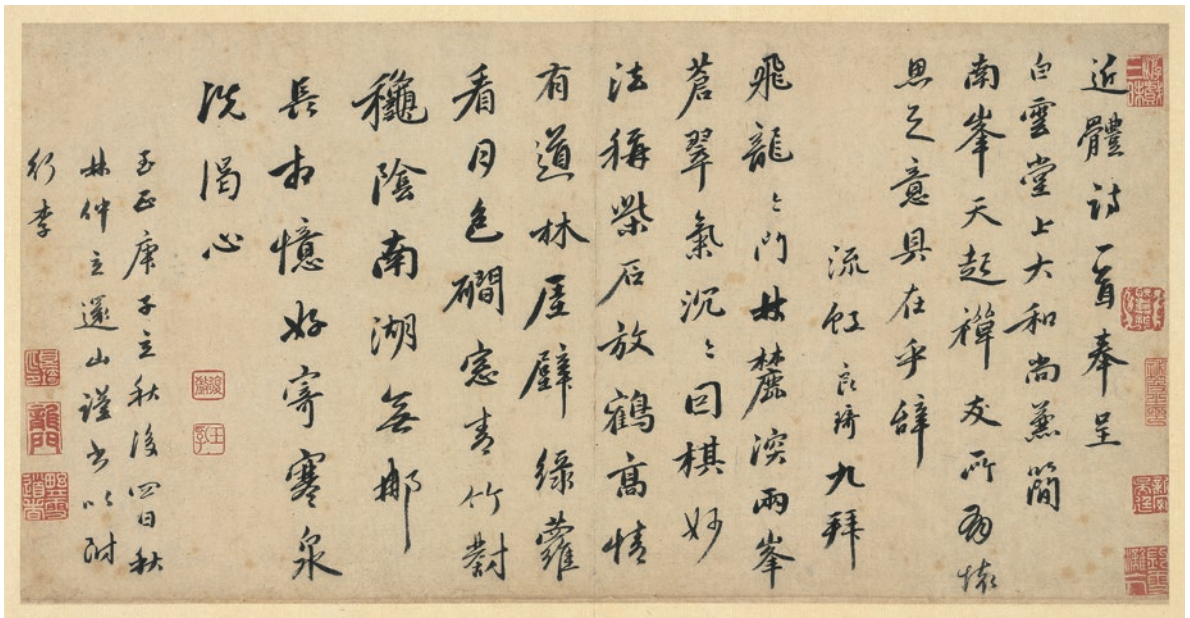 近體詩一首奉呈
白雲堂上大和尚兼簡
南峯天起禪友所有懷
思之意具在乎辭
流虹良琦九拜
飛龍〻門林麓深兩峯
蒼翠氣沉〻回棋妙
法稱柴石放鶴高情
有道林屋壁綠蘿
看月色磵窓青竹對
龝陰南湖無那
長相憶好寄寒泉
洗渴心
至正庚子立秋後四日秋
林仲立還山謹書以附
行李
龍門